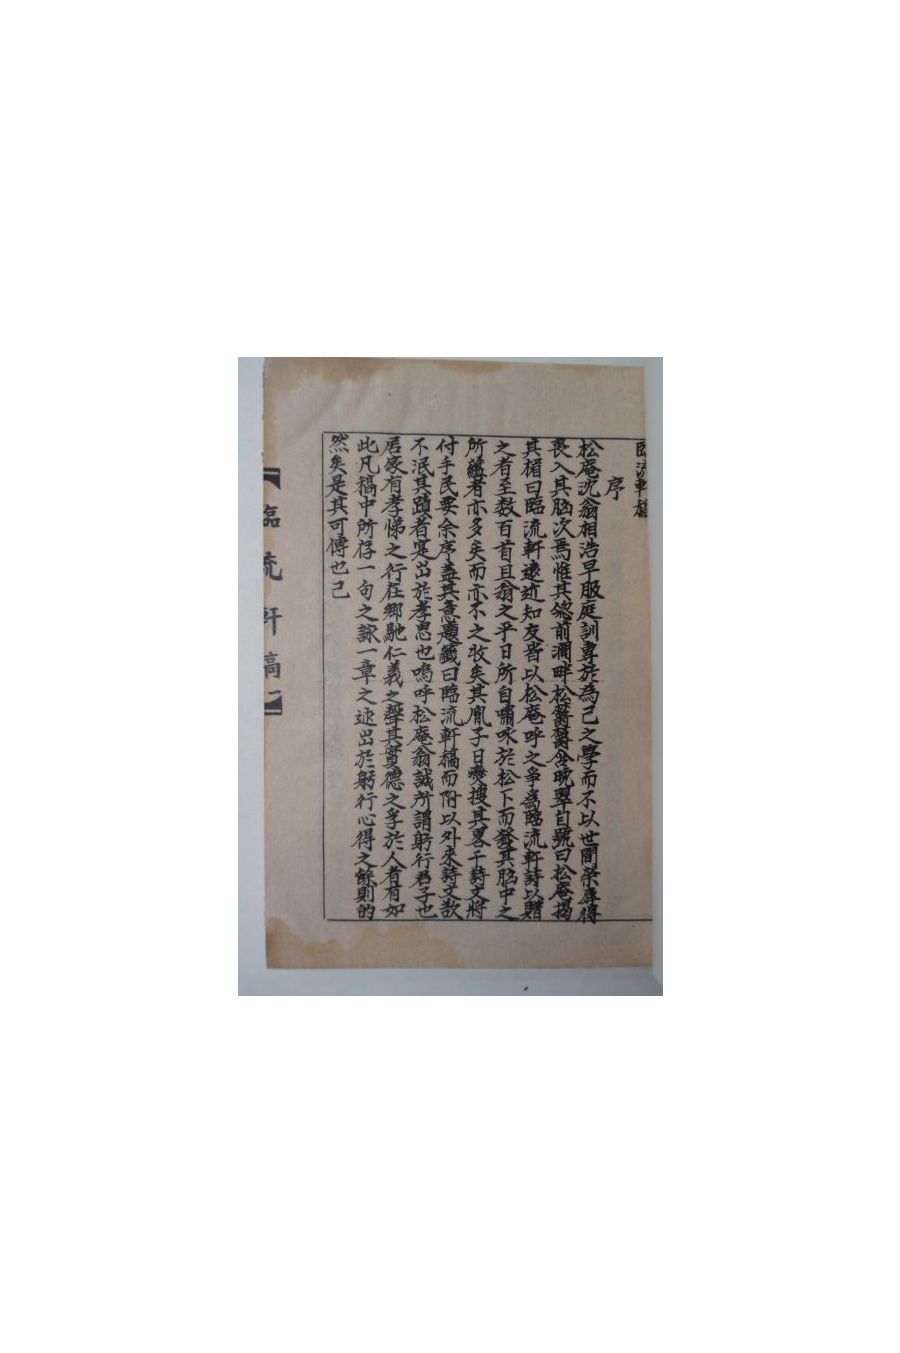 臨流軒稿
序
松庵沈翁相浩早服庭訓專於為己之學而不以世間榮辱得
喪入其胸次焉惟其窓前澗畔松欝欝含晚翠自號曰松庵揭
其楣曰臨流軒遠近知友皆以松庵呼之爭為臨流軒詩以贈
之者至数百首且翁之平日所自嘯咏於松下而發其胸中之
所蘊者亦多矣而亦不之收矣其胤子日燮搜其畧干詩文將
付手民要余序盖其意題籤曰臨流軒稿而附以外來詩文欲
不泯其蹟者寔出於孝思也嗚呼松庵翁誠所謂躬行君子也
居家有孝悌之行在鄉馳仁義之聲其實德之孚於人者有如
此凡稿中所存一句之詠一章之述出於躬行心得之餘則的
然矣是其可傳也已
臨流軒稿 一